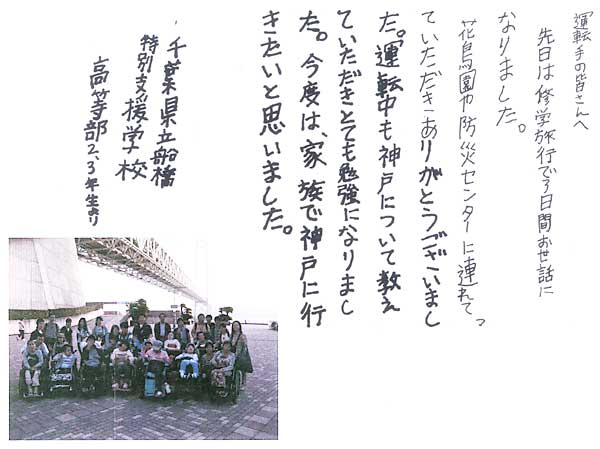 運転手の皆さんへ
先日は修学旅行で3日間お世話に
なりました。
花鳥園や防災センターに連れてっ
ていただきありがとうございまし
た。運転中も神戸について教え
ていただきとても勉強になりまし
た。今度は、家族で神戸に行
きたいと思いました。
千葉県立船橋
特別支援学校
高等部2、3年生より